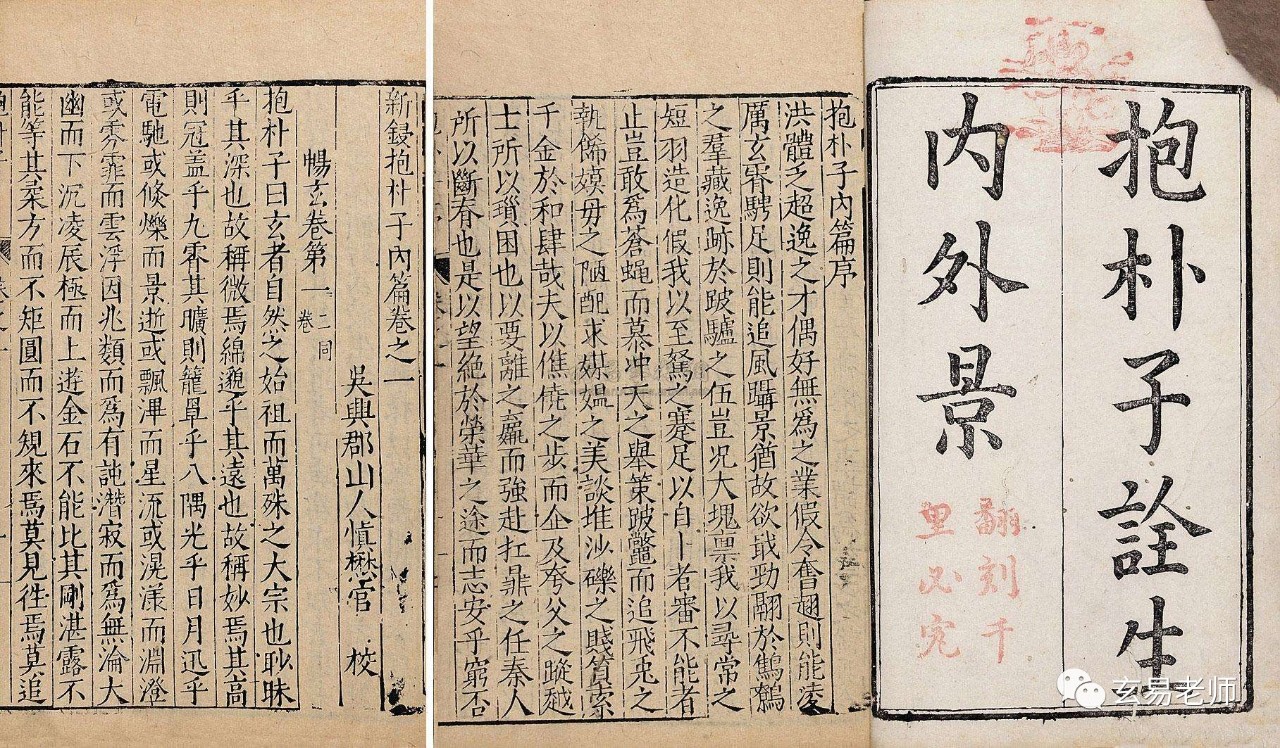 抱朴子詮生
内外景
翻刻千
里必究
抱朴子內篇序
洪體乏超逸之才偶好無爲之業假令奮翅則能凌
厲玄霄騁足則能追風躡景猶故欲戢勁翮於鷦鷯
之羣藏逸跡於跛驢之伍豈况大塊禀我以尋常之
短羽造化假我以至駑之蹇足以自卜者審不能者
止豈敢爲蒼蠅而慕冲天之舉策跛鼈而追飛兎之
軌飾嫫母之陋配求媒媪之美談堆沙礫之賤質索
千金於和肆哉夫以僬僥之步而企及夸父之蹤越
士所以瑣困也以要離之羸而強赴扛鼎之任秦人
所以斷春也是以望絶於榮華之途而志安乎窮否
新鋟抱朴子內篇卷之一
吳興郡山人慎懋官 校
暢玄卷第一 二同卷
抱朴子曰玄者自然之始祖而萬殊之大宗也眇眛
乎其深也故稱微焉綿邈乎其遠也故稱妙焉其高
則冠盖乎九霄其曠則籠罩乎八隅光乎日月迅乎
電馳或倏爍而景逝或飄滭而星流或滉漾而淵澄
或雰霏而雲浮因兆類而爲有託潛寂而爲無淪大
幽而下沉凌辰極而上遊金石不能比其剛湛露不
能等其柔方而不矩圓而不規來焉莫見徃焉莫追
玄易老师